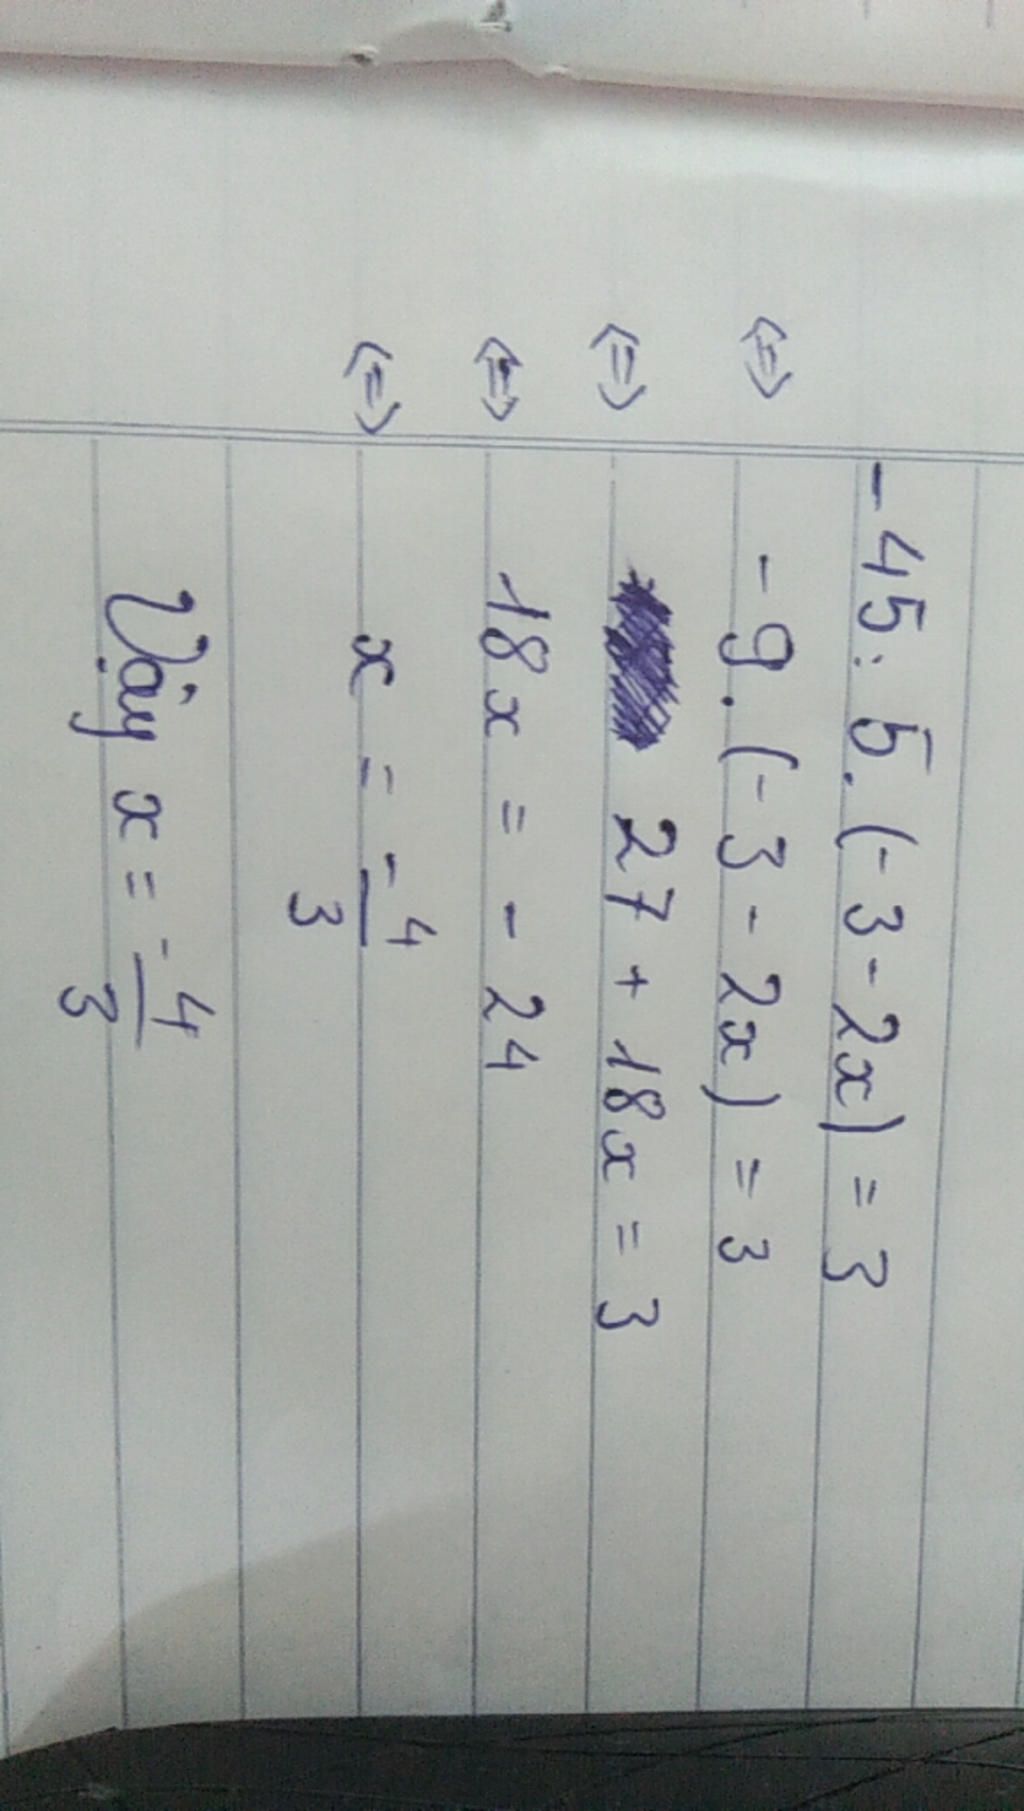 - 45 : 5 . (- 3 - 2x) = 3
⇔ - 9 . (- 3 - 2x) = 3
⇔ 27 + 18x = 3
⇔ 18x = - 24
⇔ x = -4/3
Vậy x = -4/3